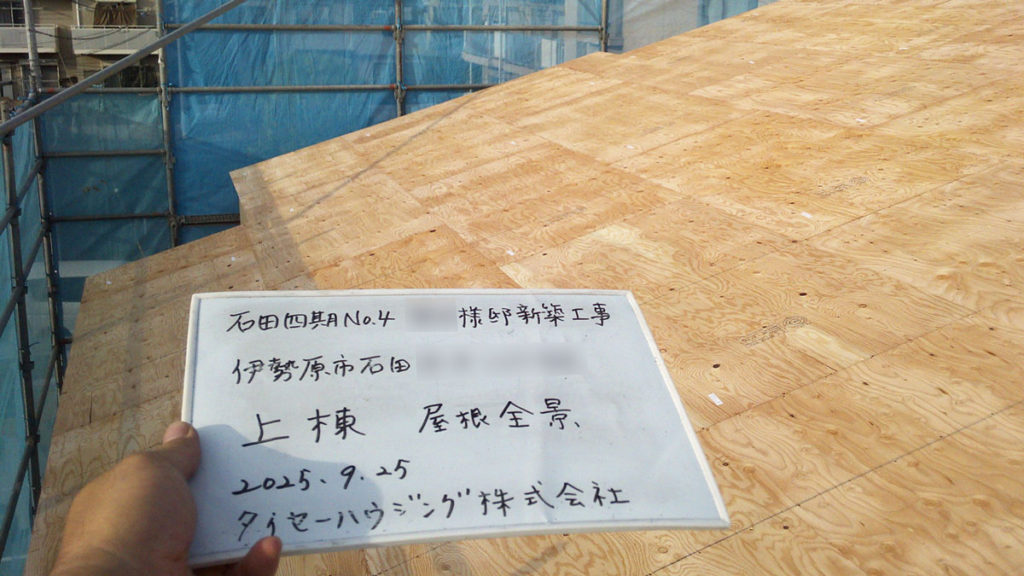 石田四期No.4 様邸新築工事
伊勢原市石田
上棟 屋根全景
2025.9.25
タイセーハウジング株式会社